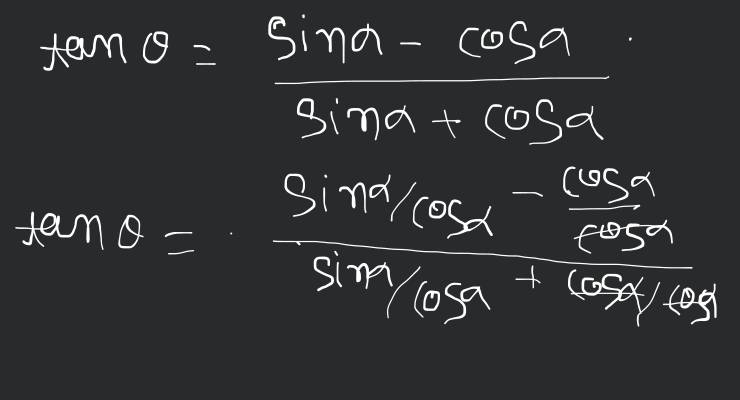 tan θ = (sinα - cosα) / (sinα + cosα)
tan θ = (sinα/cosα - cosα/cosα) / (sinα/cosα + cosα/cosα)